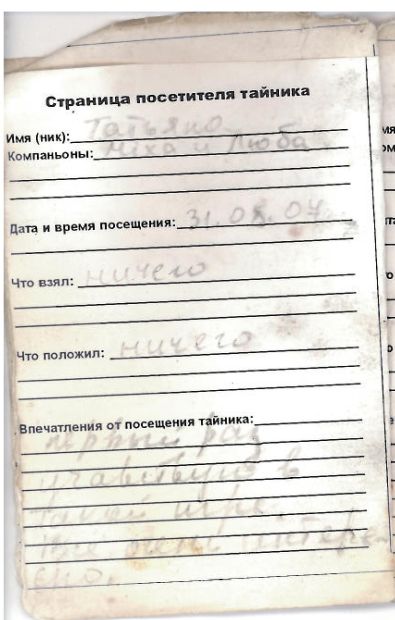 Страница посетителя тайника
Имя (ник): Татьяна
Компаньоны: Миха и Люба.
Дата и время посещения: 31.08.07
Что взял: ничего
Что положил: ничего
Впечатления от посещения тайника:
первый раз
учавствую в
такой игре.
Все очень интере-
сно.